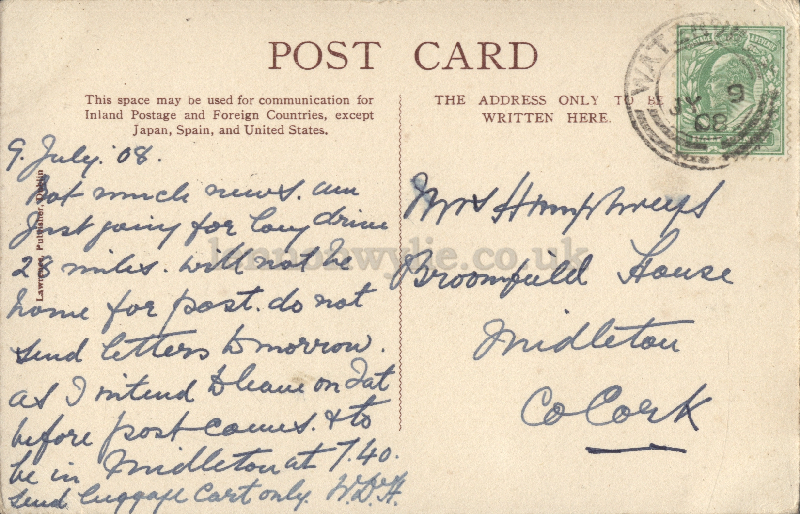 POST CARD
This space may be used for communication for
Inland Postage and Foreign Countries, except
Japan, Spain, and United States.
THE ADDRESS ONLY TO BE
WRITTEN HERE.
JY 9
08
9. July. 08.
Not much news. am
just going for long drive
28 miles. will not be
home for post. do not
send letters tomorrow.
as I intend to leave on Sat
before post comes. & to
be in Midleton at 7.40.
send luggage Cart only. W.D.H.
Mrs Humphreys
Broomfield House
Midleton
Co Cork
Lawrence, Publisher, Dublin
lennonwylie.co.uk